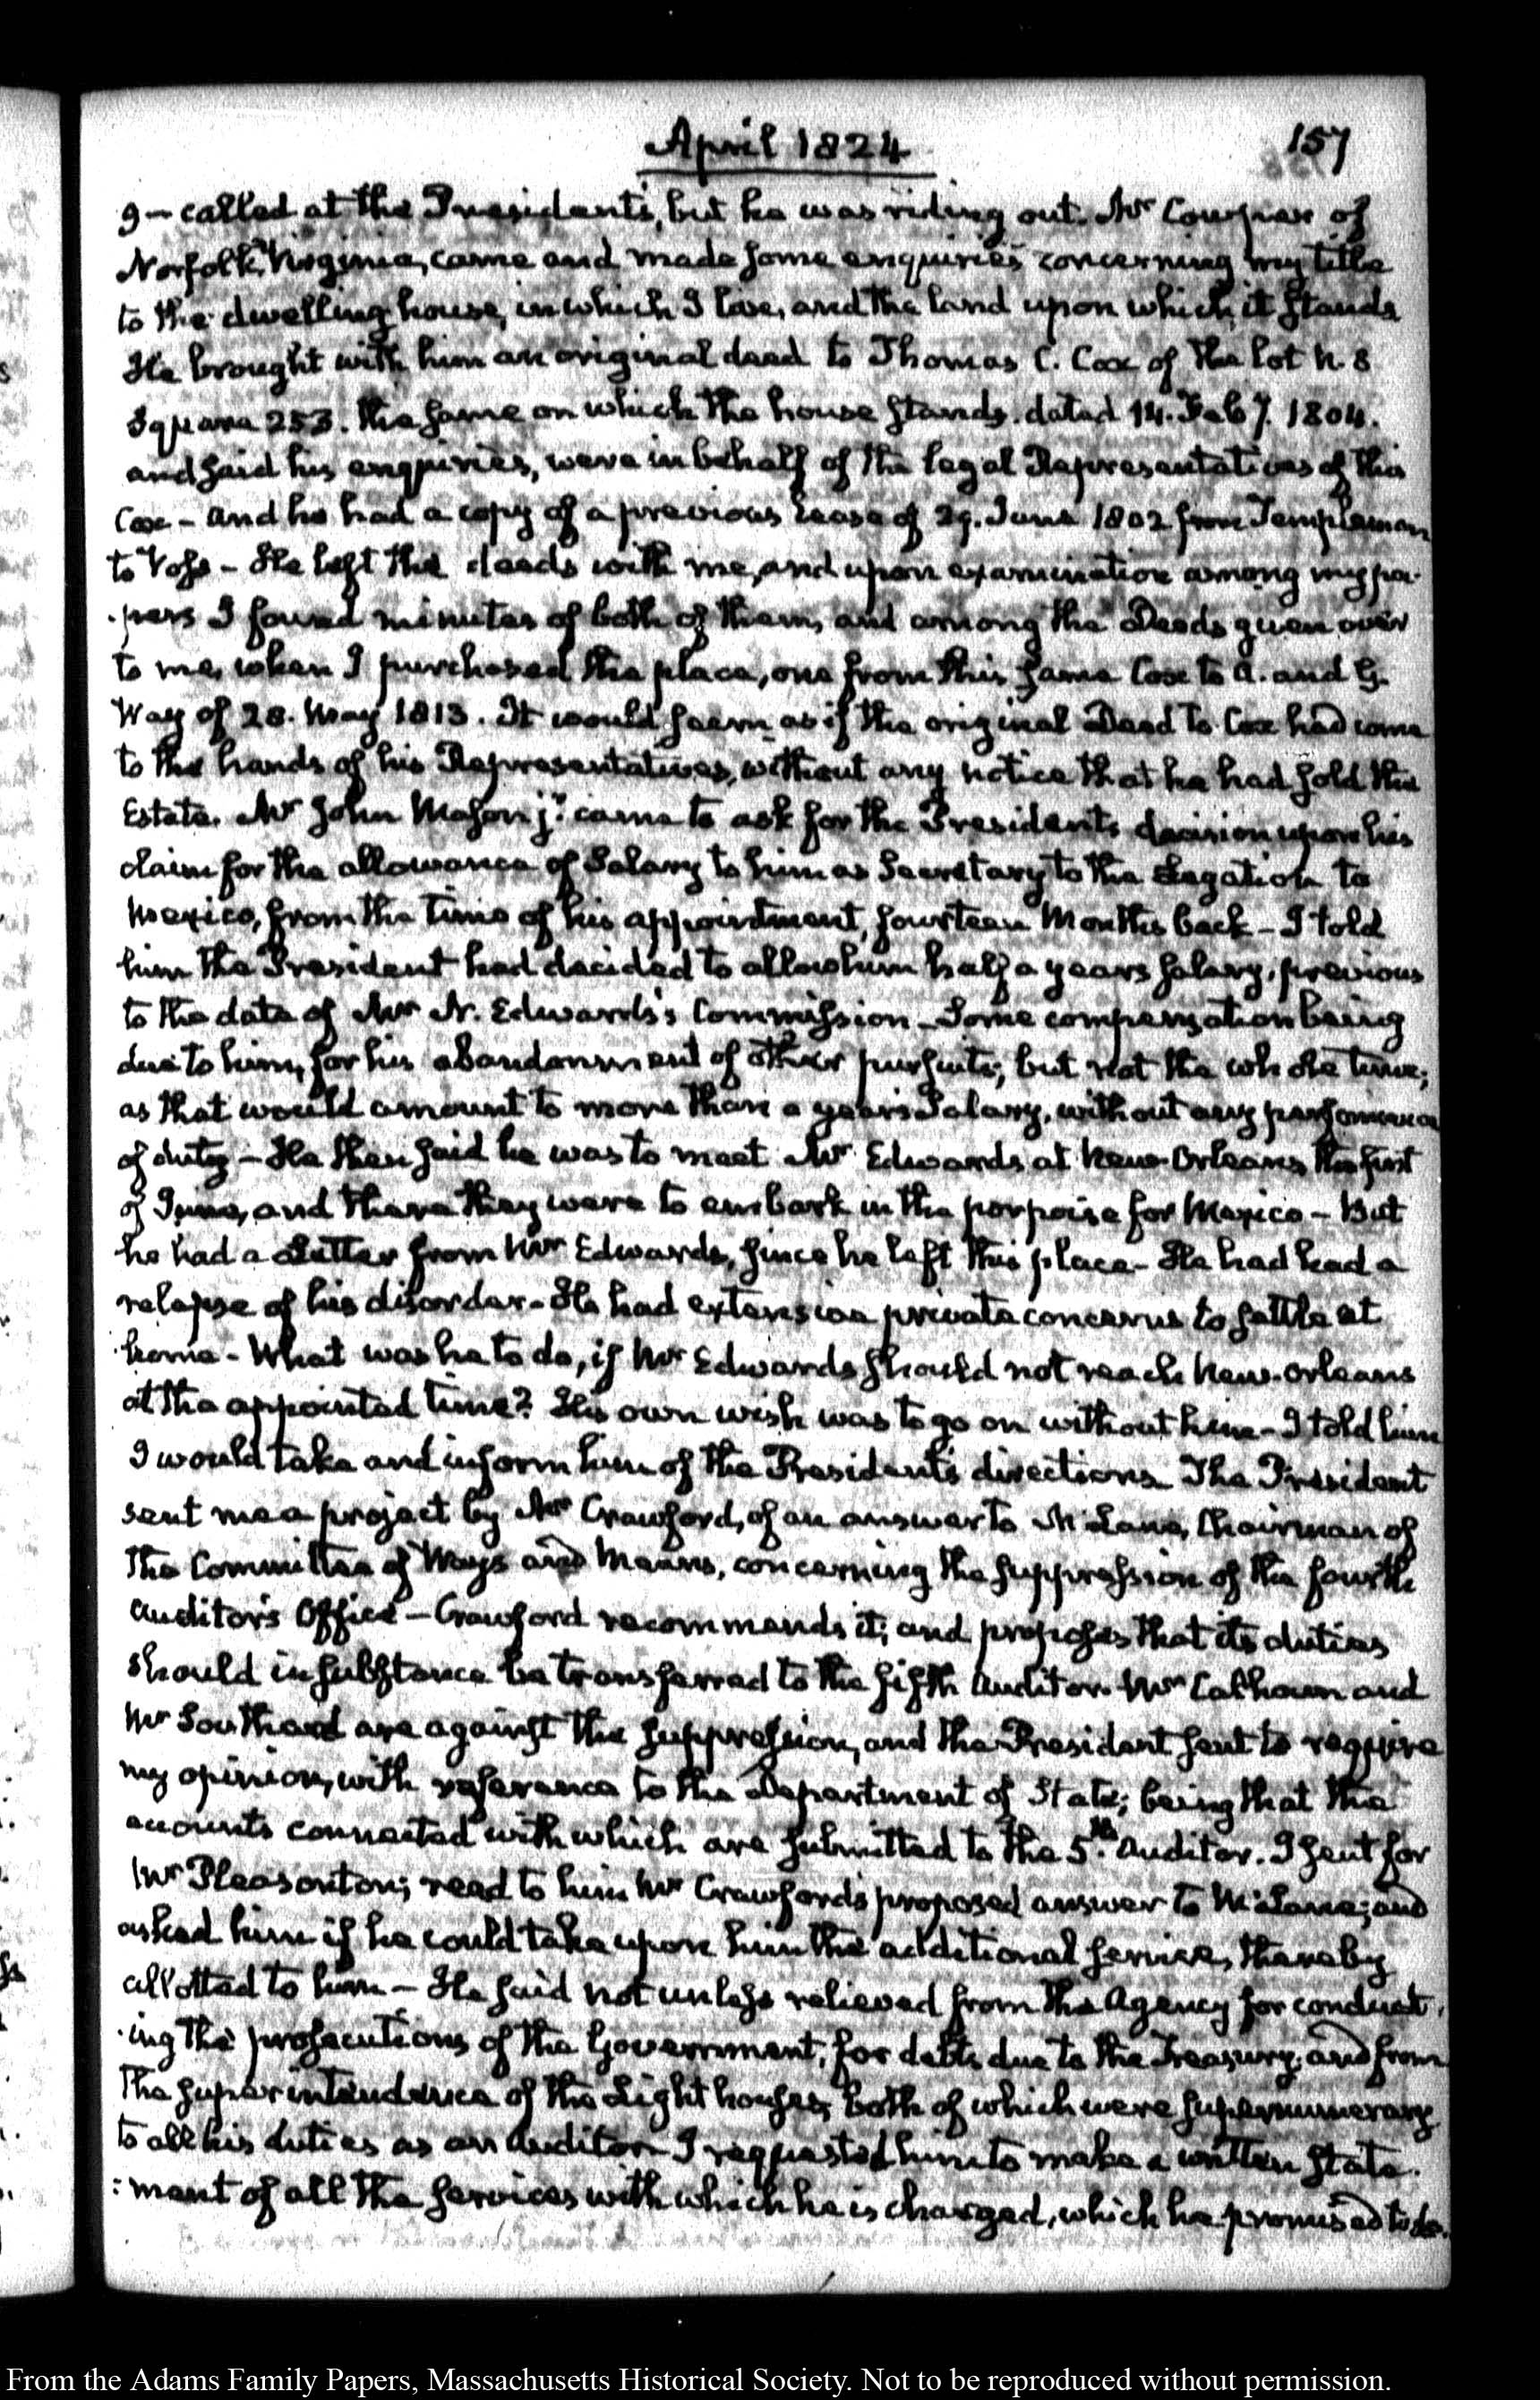 April 1824
157
9 — called at the President's, but he was riding out. Mr Cowper of
Norfolk, Virginia, came and made some enquiries concerning my title
to the dwelling house, in which I live, and the land upon which it stands
He brought with him an original deed to Thomas C. Cox of the lot N. 8
Square 253. the same on which the house stands. dated 14. Feby. 1804.
and said his enquiries, were in behalf of the legal Representatives of this
Cox — and he had a copy of a previous Lease of 29. June 1802 from Templeman
to Voss — He left the deeds with me, and upon examination among my pa-
-pers I found minutes of both of them, and among the Deeds given over
to me, when I purchased the place, one from this same Cox to A. and G.
Way of 28. May 1813. It would seem as if the original Deed to Cox had come
to the hands of his Representatives, without any notice that he had sold the
Estate. Mr John Mason jr. came to ask for the President's decision upon his
claim for the allowance of Salary to him as Secretary to the Legation to
Mexico, from the time of his appointment, fourteen Months back — I told
him the President had decided to allow him half a years salary, previous
to the date of Mr N. Edwards's Commission — Some compensation being
due to him, for his abandonment of other pursuits; but not the whole time;
as that would amount to more than a year's Salary, without any performance
of duty — He then said he was to meet Mr Edwards at New-Orleans, the first
of June, and there they were to embark in the porpoise for Mexico — But
he had a Letter from Mr Edwards, since he left this place — He had had a
relapse of his disorder — He had extensive private concerns to settle at
home — What was he to do, if Mr Edwards should not reach New-Orleans
at the appointed time? His own wish was to go on without him — I told him
I would take and inform him of the President's directions. The President
sent me a project by Mr Crawford, of an answer to McLane, Chairman of
the Committee of Ways and Means, concerning the suppression of the fourth
Auditor's Office — Crawford recommends it; and proposes that its duties
should in substance be transferred to the fifth Auditor. Mr Calhoun and
Mr Southard are against the suppression, and the President sent to require
my opinion, with reference to the Department of State; being that the
accounts connected with which are submitted to the 5th. Auditor. I sent for
Mr Pleasonton; read to him Mr Crawford's proposed answer to McLane; and
asked him if he could take upon him the additional service, thereby
allotted to him — He said not unless relieved from the Agency for conduct-
-ing the prosecutions of the Government, for debts due to the Treasury; and from
the superintendence of the Light houses, both of which were supernumerary
to all his duties as an Auditor. I requested him to make a written state-
:ment of all the services with which he is charged, which he promised to do.
From the Adams Family Papers, Massachusetts Historical Society. Not to be reproduced without permission.